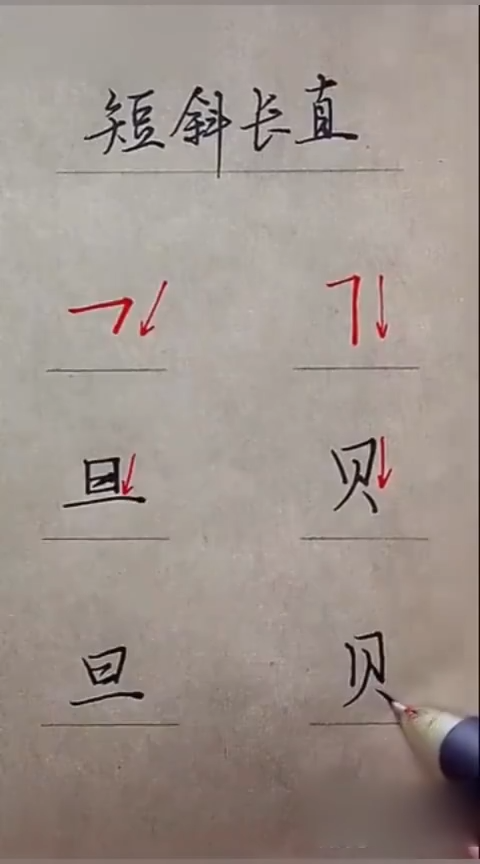 短斜长直
旦 贝
旦 贝